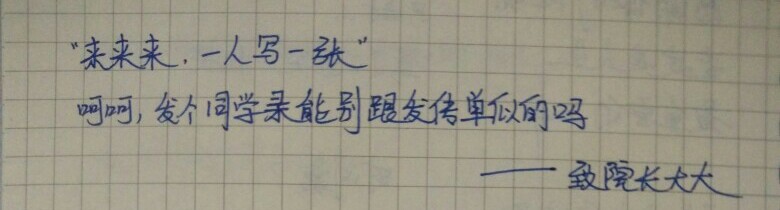 "来来来，一人写一张"
呵呵，发个同学录能别跟发传单似的吗
——致院长大大